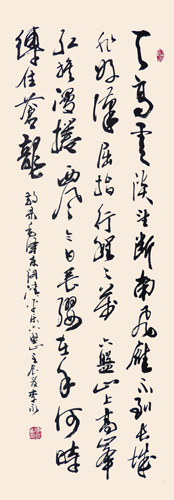 天高雲淡望斷南飛雁不到長城
非好漢屈指行程二萬六盤山上高峯
紅旗漫捲西風今日長纓在手何時
縛住蒼龍
錄毛澤東詞清平樂六盤山